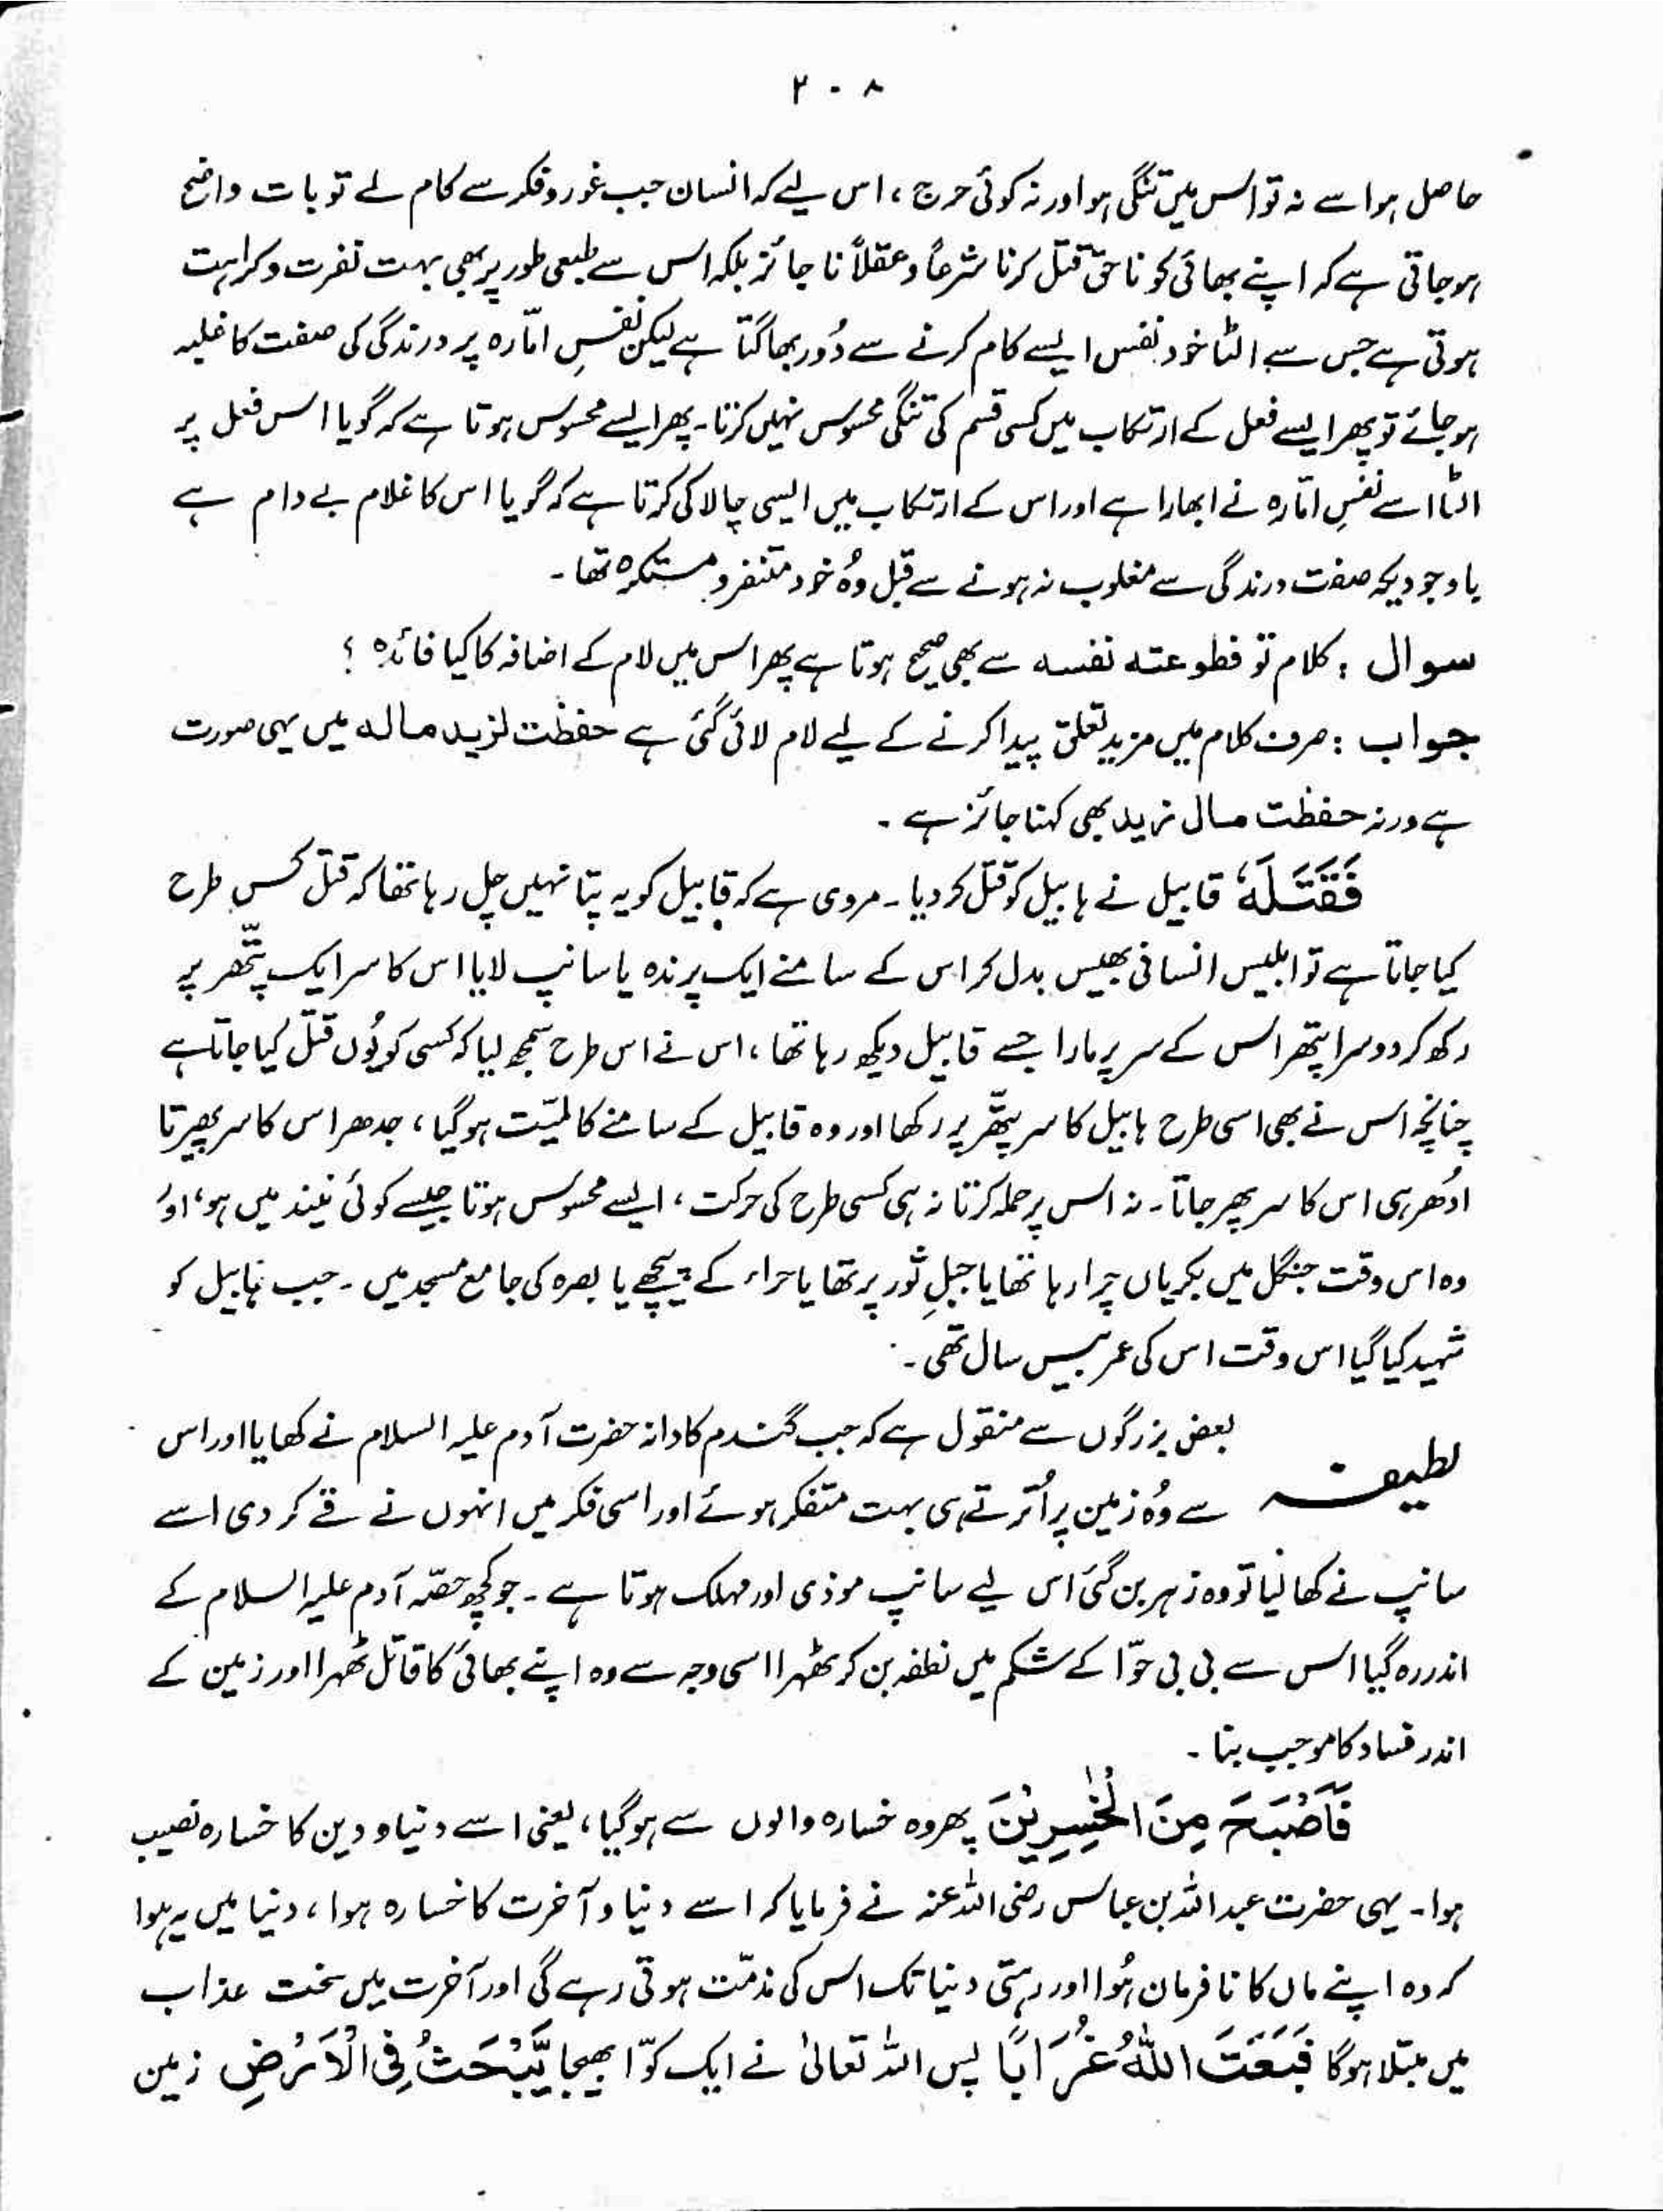 ۲۰۸
حاصل ہوا سے نہ تو اس میں تنگی ہو اور نہ کوئی حرج ، اس لیے کہ انسان جب غور و فکر سے کام لے تو بات واضح
ہو جاتی ہے کہ اپنے بھائی کو ناحق قتل کرنا شرعاً و عقلاً نا جائز بلکہ اس سے طبعی طور پر بھی بہت نفرت و کراہت
ہوتی ہے جس سے الٹا خود نفس ایسے کام کرنے سے دُور بھاگتا ہے لیکن نفسِ امّارہ پر درندگی کی صفت کا غلبہ
ہو جائے تو پھر ایسے فعل کے ارتکاب میں کسی قسم کی تنگی محسوس نہیں کرتا۔ پھر ایسے محسوس ہوتا ہے کہ گویا اس فعل پر
الٹا اسے نفسِ امّارہ نے ابھارا ہے اور اس کے ارتکاب میں ایسی چالاکی کرتا ہے کہ گویا اس کا غلام بے دام ہے
باوجودیکہ صفت درندگی سے مغلوب نہ ہونے سے قبل وُہ خود متنفر و مستکرہ تھا۔
سوال : کلام تو فطوعتہ نفسہ سے بھی صحیح ہوتا ہے پھر اس میں لام کے اضافہ کا کیا فائدہ ؟
جواب : صرف کلام میں مزید تعلق پیدا کرنے کے لیے لام لائی گئی ہے حفظت لزید مالہ میں یہی صورت
ہے ورنہ حفظت مال زید بھی کہنا جائز ہے ۔
فَقَتَلَهٗ قابیل نے ہابیل کو قتل کر دیا۔ مروی ہے کہ قابیل کو یہ پتا نہیں چل رہا تھا کہ قتل کس طرح
کیا جاتا ہے تو ابلیس انسانی بھیس بدل کر اس کے سامنے ایک پرندہ یا سانپ لایا اس کا سر ایک پتّھر پر
رکھ کر دوسرا پتھر اس کے سر پر مارا جسے قابیل دیکھ رہا تھا ، اس نے اس طرح سمجھ لیا کہ کسی کو یُوں قتل کیا جاتا ہے
چنانچہ اس نے بھی اسی طرح ہابیل کا سر پتّھر پر رکھا اور وہ قابیل کے سامنے کالمیّت ہو گیا ، جدھر اس کا سر پھیرتا
ادُھر ہی اس کا سر پھر جاتا۔ نہ اس پر حملہ کرتا نہ ہی کسی طرح کی حرکت ، ایسے محسوس ہوتا جیسے کوئی نیند میں ہو ، اور
وہ اس وقت جنگل میں بکریاں چرا رہا تھا یا جبلِ ثور پر تھا یا حراء کے پیچھے یا بصرہ کی جامع مسجد میں۔ جب ہابیل کو
شہید کیا گیا اس وقت اس کی عمر بیس سال تھی ۔
لطیفہ بعض بزرگوں سے منقول ہے کہ جب گندم کا دانہ حضرت آدم علیہ السلام نے کھایا اور اس
سے وُہ زمین پر اُترتے ہی بہت متفکر ہوئے اور اسی فکر میں انہوں نے قے کر دی اسے
سانپ نے کھا لیا تو وہ زہر بن گئی اس لیے سانپ موذی اور مہلک ہوتا ہے ۔ جو کچھ حصّہ آدم علیہ السلام کے
اندر رہ گیا اس سے بی بی حوّا کے شکم میں نطفہ بن کر ٹھہرا اسی وجہ سے وہ اپنے بھائی کا قاتل ٹھہرا اور زمین کے
اندر فساد کا موجب بنا ۔
فَاَصْبَحَ مِنَ الْخٰسِرِيْنَ پھر وہ خسارہ والوں سے ہو گیا ، یعنی اسے دنیا و دین کا خسارہ نصیب
ہوا۔ یہی حضرت عبد اللہ بن عباس رضی اللہ عنہ نے فرمایا کہ اسے دنیا و آخرت کا خسارہ ہوا ، دنیا میں یہ ہوا
کہ وہ اپنے ماں کا نافرمان ہُوا اور رہتی دنیا تک اس کی مذمّت ہوتی رہے گی اور آخرت میں سخت عذاب
میں مبتلا ہو گا فَبَعَثَ اللّٰهُ غُرَابًا پس اللہ تعالیٰ نے ایک کوّا بھیجا يَّبْحَثُ فِى الْاَرْضِ زمین